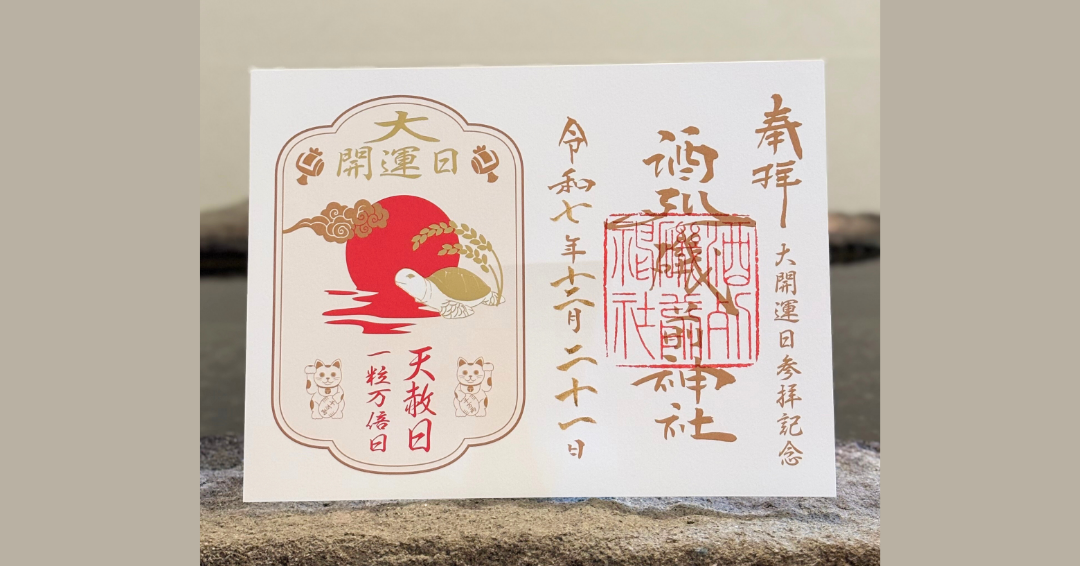 奉拝
大開運日参拝記念
酒列磯前神社
令和七年十二月二十一日
大
開運日
天赦日
一粒万倍日